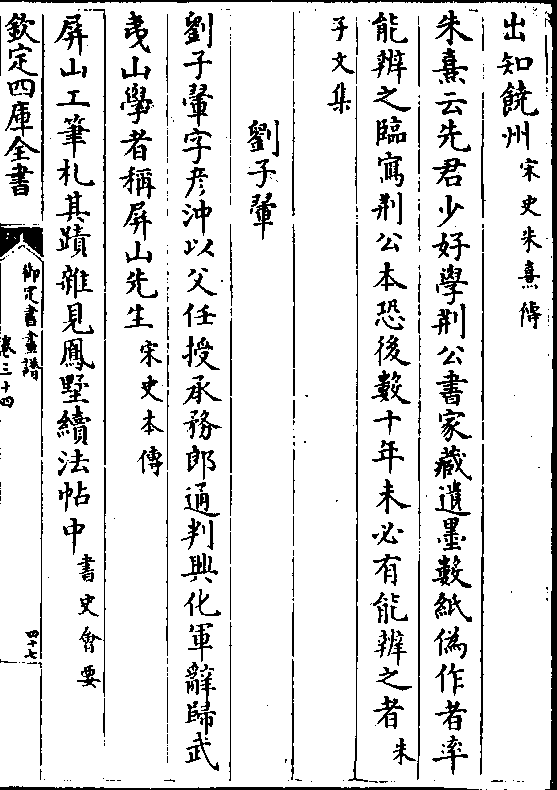 出知饒州宋史朱熹傳
朱熹云先君少好學荆公書家藏遺墨數紙偽作者率
能辨之臨寫荆公本恐後數十年未必有能辨之者朱
子文集
劉子翬
劉子翬字彦沖以父任授承務郎通判興化軍辭歸武
夷山學者稱屏山先生宋史本傳
屏山工筆札其蹟雜見鳳墅續法帖中書史會要
欽定四庫全書
御定書畫譜
卷三十四
四十七